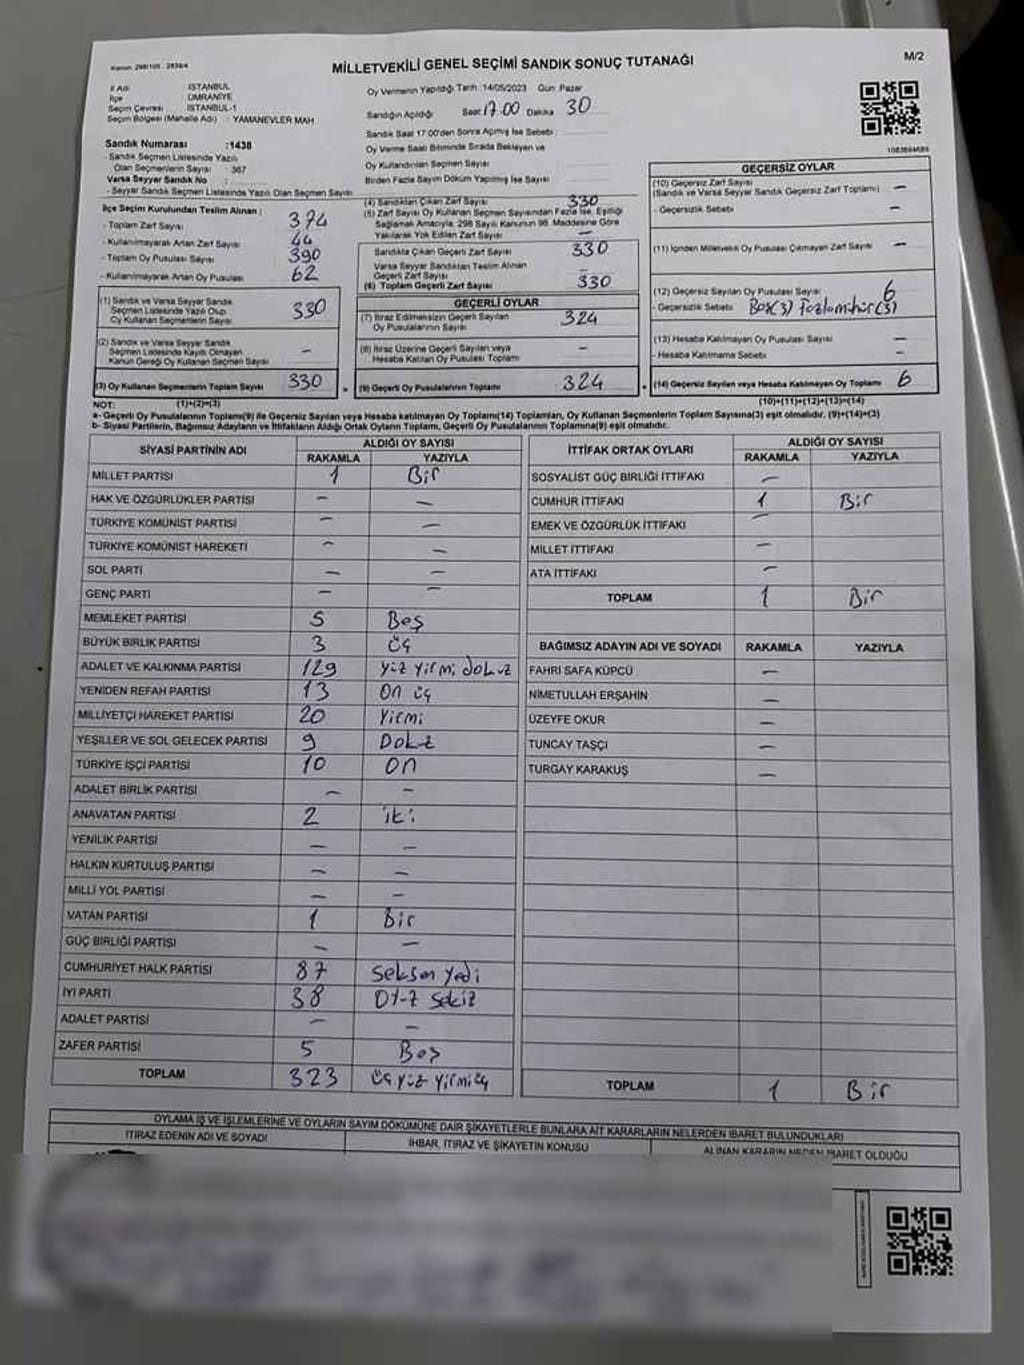 Kanun: 298/105 - 2839/4
MİLLETVEKİLİ GENEL SEÇİMİ SANDIK SONUÇ TUTANAĞI
M/2
İl Adı : İSTANBUL
İlçe : ÜMRANİYE
Seçim Çevresi : İSTANBUL-1
Seçim Bölgesi (Mahalle Adı) : YAMANEVLER MAH
Oy Vermenin Yapıldığı Tarih :14/05/2023 Gün: Pazar
Sandığın Açıldığı Saat 17:00 Dakika 30
Sandık Saat 17:00'den Sonra Açılmış İse Sebebi :
Oy Verme Saati Bitiminde Sırada Bekleyen ve
Oy Kullandırılan Seçmen Sayısı
Birden Fazla Sayım Döküm Yapılmış İse Sayısı
Sandık Numarası :1438
- Sandık Seçmen Listesinde Yazılı
Olan Seçmenlerin Sayısı : 367
Varsa Seyyar Sandık No :
- Seyyar Sandık Seçmen Listesinde Yazılı Olan Seçmen Sayısı
İlçe Seçim Kurulundan Teslim Alınan :
- Toplam Zarf Sayısı 374
- Kullanılmayarak Artan Zarf Sayısı 44
- Toplam Oy Pusulası Sayısı 390
- Kullanılmayarak Artan Oy Pusulası 62
(1) Sandık ve Varsa Seyyar Sandık
Seçmen Listesinde Yazılı Olup
Oy Kullanan Seçmenlerin Sayısı 330
(2) Sandık ve Varsa Seyyar Sandık
Seçmen Listesinde Kayıtlı Olmayan
Kanun Gereği Oy Kullanan Seçmen Sayısı -
(3) Oy Kullanan Seçmenlerin Toplam Sayısı 330
(4) Sandıktan Çıkan Zarf Sayısı 330
(5) Zarf Sayısı Oy Kullanan Seçmen Sayısından Fazla İse, Eşitliği
Sağlamak Amacıyla, 298 Sayılı Kanunun 98. Maddesine Göre
Yakılarak Yok Edilen Zarf Sayısı -
Sandıkta Çıkan Geçerli Zarf Sayısı 330
Varsa Seyyar Sandıktan Teslim Alınan
Geçerli Zarf Sayısı -
(6) Toplam Geçerli Zarf Sayısı 330
GEÇERLİ OYLAR
(7) İtiraz Edilmeksizin Geçerli Sayılan
Oy Pusulalarının Sayısı 324
(8) İtiraz Üzerine Geçerli Sayılan veya
Hesaba Katılan Oy Pusulası Toplamı -
(9) Geçerli Oy Pusulalarının Toplamı 324
GEÇERSİZ OYLAR
(10) Geçersiz Zarf Sayısı
(Sandık ve Varsa Seyyar Sandık Geçersiz Zarf Toplamı) -
- Geçersizlik Sebebi -
(11) İçinden Milletvekili Oy Pusulası Çıkmayan Zarf Sayısı -
(12) Geçersiz Sayılan Oy Pusulası Sayısı 6
- Geçersizlik Sebebi Boş(3)
(13) Hesaba Katılmayan Oy Pusulası Sayısı -
- Hesaba Katılmama Sebebi -
(14) Geçersiz Sayılan veya Hesaba Katılmayan Oy Toplamı 6
NOT: (1)+(2)=(3)
(10)+(11)+(12)+(13)=(14)
a- Geçerli Oy Pusulalarının Toplamı(9) ile Geçersiz Sayılan veya Hesaba katılmayan Oy Toplamı(14) Toplamları, Oy Kullanan Seçmenlerin Toplam Sayısına(3) eşit olmalıdır. (9)+(14)=(3)
b- Siyasi Partilerin, Bağımsız Adayların ve İttifakların Aldığı Ortak Oyların Toplamı, Geçerli Oy Pusulalarının Toplamına(9) eşit olmalıdır.
SİYASİ PARTİNİN ADI ALDIĞI OY SAYISI
RAKAMLA YAZIYLA
MİLLET PARTİSİ 1 Bir
HAK VE ÖZGÜRLÜKLER PARTİSİ - -
TÜRKİYE KOMÜNİST PARTİSİ - -
TÜRKİYE KOMÜNİST HAREKETİ - -
SOL PARTİ - -
GENÇ PARTİ - -
MEMLEKET PARTİSİ 5 Beş
BÜYÜK BİRLİK PARTİSİ 3 üç
ADALET VE KALKINMA PARTİSİ 129 yüz yirmi dokuz
YENİDEN REFAH PARTİSİ 13 on üç
MİLLİYETÇİ HAREKET PARTİSİ 20 Yirmi
YEŞİLLER VE SOL GELECEK PARTİSİ 9 Dokuz
TÜRKİYE İŞÇİ PARTİSİ 10 on
ADALET BİRLİK PARTİSİ - -
ANAVATAN PARTİSİ 2 iki
YENİLİK PARTİSİ - -
HALKIN KURTULUŞ PARTİSİ - -
MİLLİ YOL PARTİSİ - -
VATAN PARTİSİ 1 Bir
GÜÇ BİRLİĞİ PARTİSİ - -
CUMHURİYET HALK PARTİSİ 87 seksen yedi
İYİ PARTİ 38 otuz sekiz
ADALET PARTİSİ - -
ZAFER PARTİSİ 5 Beş
TOPLAM 323 üç yüz yirmi üç
İTTİFAK ORTAK OYLARI ALDIĞI OY SAYISI
RAKAMLA YAZIYLA
SOSYALİST GÜÇ BİRLİĞİ İTTİFAKI -
CUMHUR İTTİFAKI 1 Bir
EMEK VE ÖZGÜRLÜK İTTİFAKI -
MİLLET İTTİFAKI -
ATA İTTİFAKI -
TOPLAM 1 Bir
BAĞIMSIZ ADAYIN ADI VE SOYADI RAKAMLA YAZIYLA
FAHRİ SAFA KÜPCÜ -
NİMETULLAH ERŞAHİN -
ÜZEYFE OKUR -
TUNCAY TAŞÇI -
TURGAY KARAKUŞ -
TOPLAM 1 Bir
OYLAMA İŞ VE İŞLEMLERİNE VE OYLARIN SAYIM DÖKÜMÜNE DAİR ŞİKAYETLERLE BUNLARA AİT KARARLARIN NELERDEN İBARET BULUNDUKLARI
İTİRAZ EDENİN ADI VE SOYADI
İHBAR, İTİRAZ VE ŞİKAYETİN KONUSU
ALINAN KARARIN NEDEN İBARET OLDUĞU